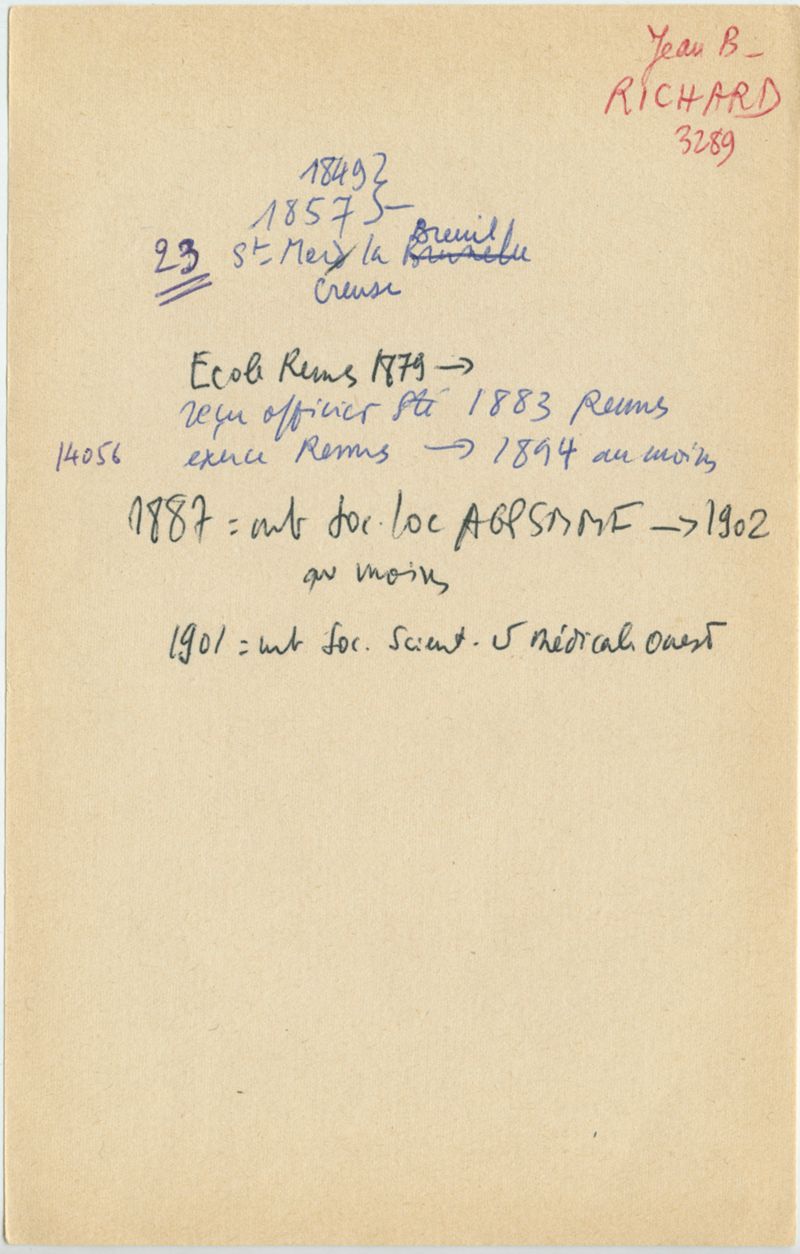 Jean B-
RICHARD
3289
1849 }
1857 } -
Breuil
23 St- Merd la
Creuse
Ecole Rennes 1879 →
reçu officier Sté 1883 Rennes
14056 exerce Rennes → 1894 au moins
1887 = mb Soc. loc AGPSMMF → 1902
au moins
1901 = mb Soc. Scient. & médicale ouest